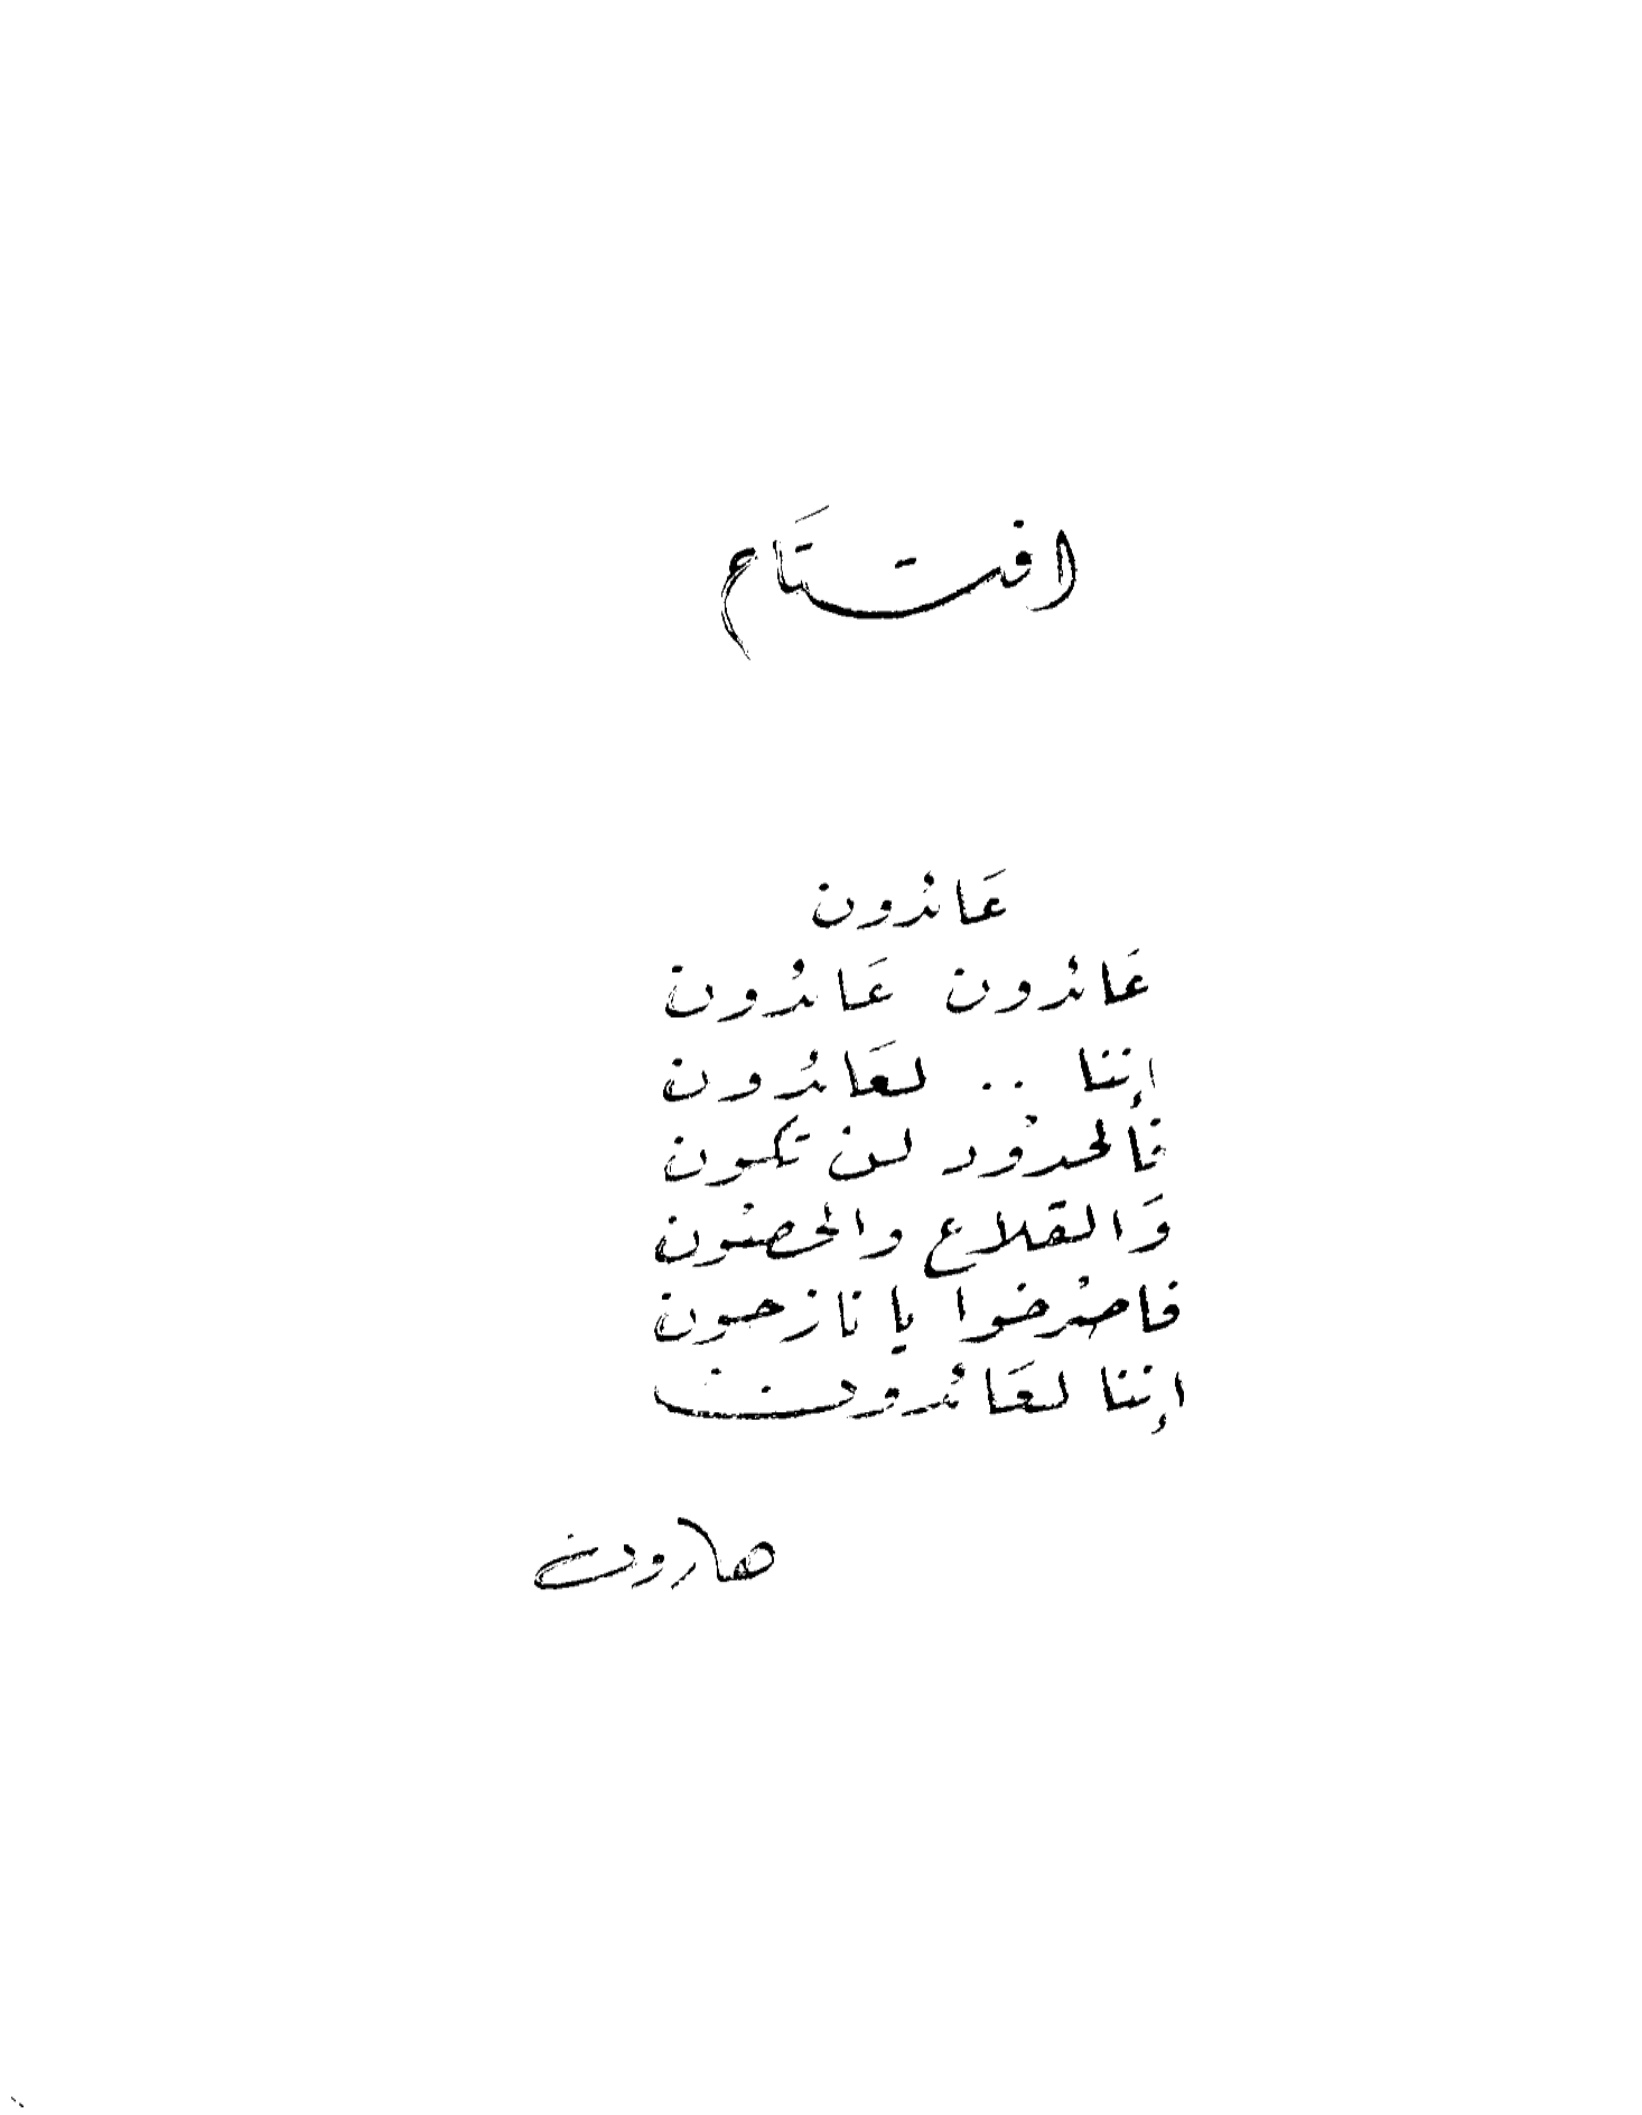 افتتَاح
عَائدون
عَائدون عَائدُون
إننا .. لعَائدُون
فألحدوُد لن تكون
وَالقلاع والحصوُن
فاصرُخوا يا نازحون
إننا لعَائدوُن
هارون